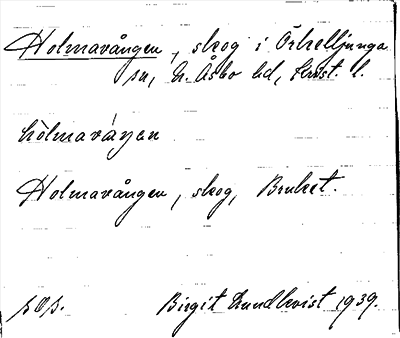 Holmavången, skog i Örkelljunga
sn, N. Åsbo hd, Krist. l.
hòlmaváŋen
Holmavången, skog, Bruket.
sOs.
Birgit Lundkvist 1939.